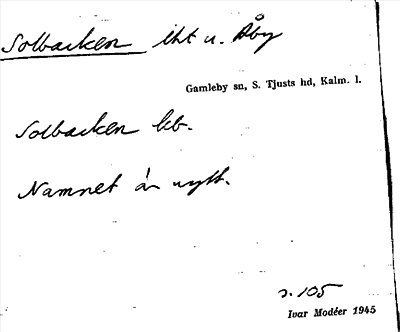 Solbacken lht u. Åby
Gamleby sn, S. Tjusts hd, Kalm. l.
Solbacken lb.
Namnet är nytt.
s. 105
Ivar Modéer 1945